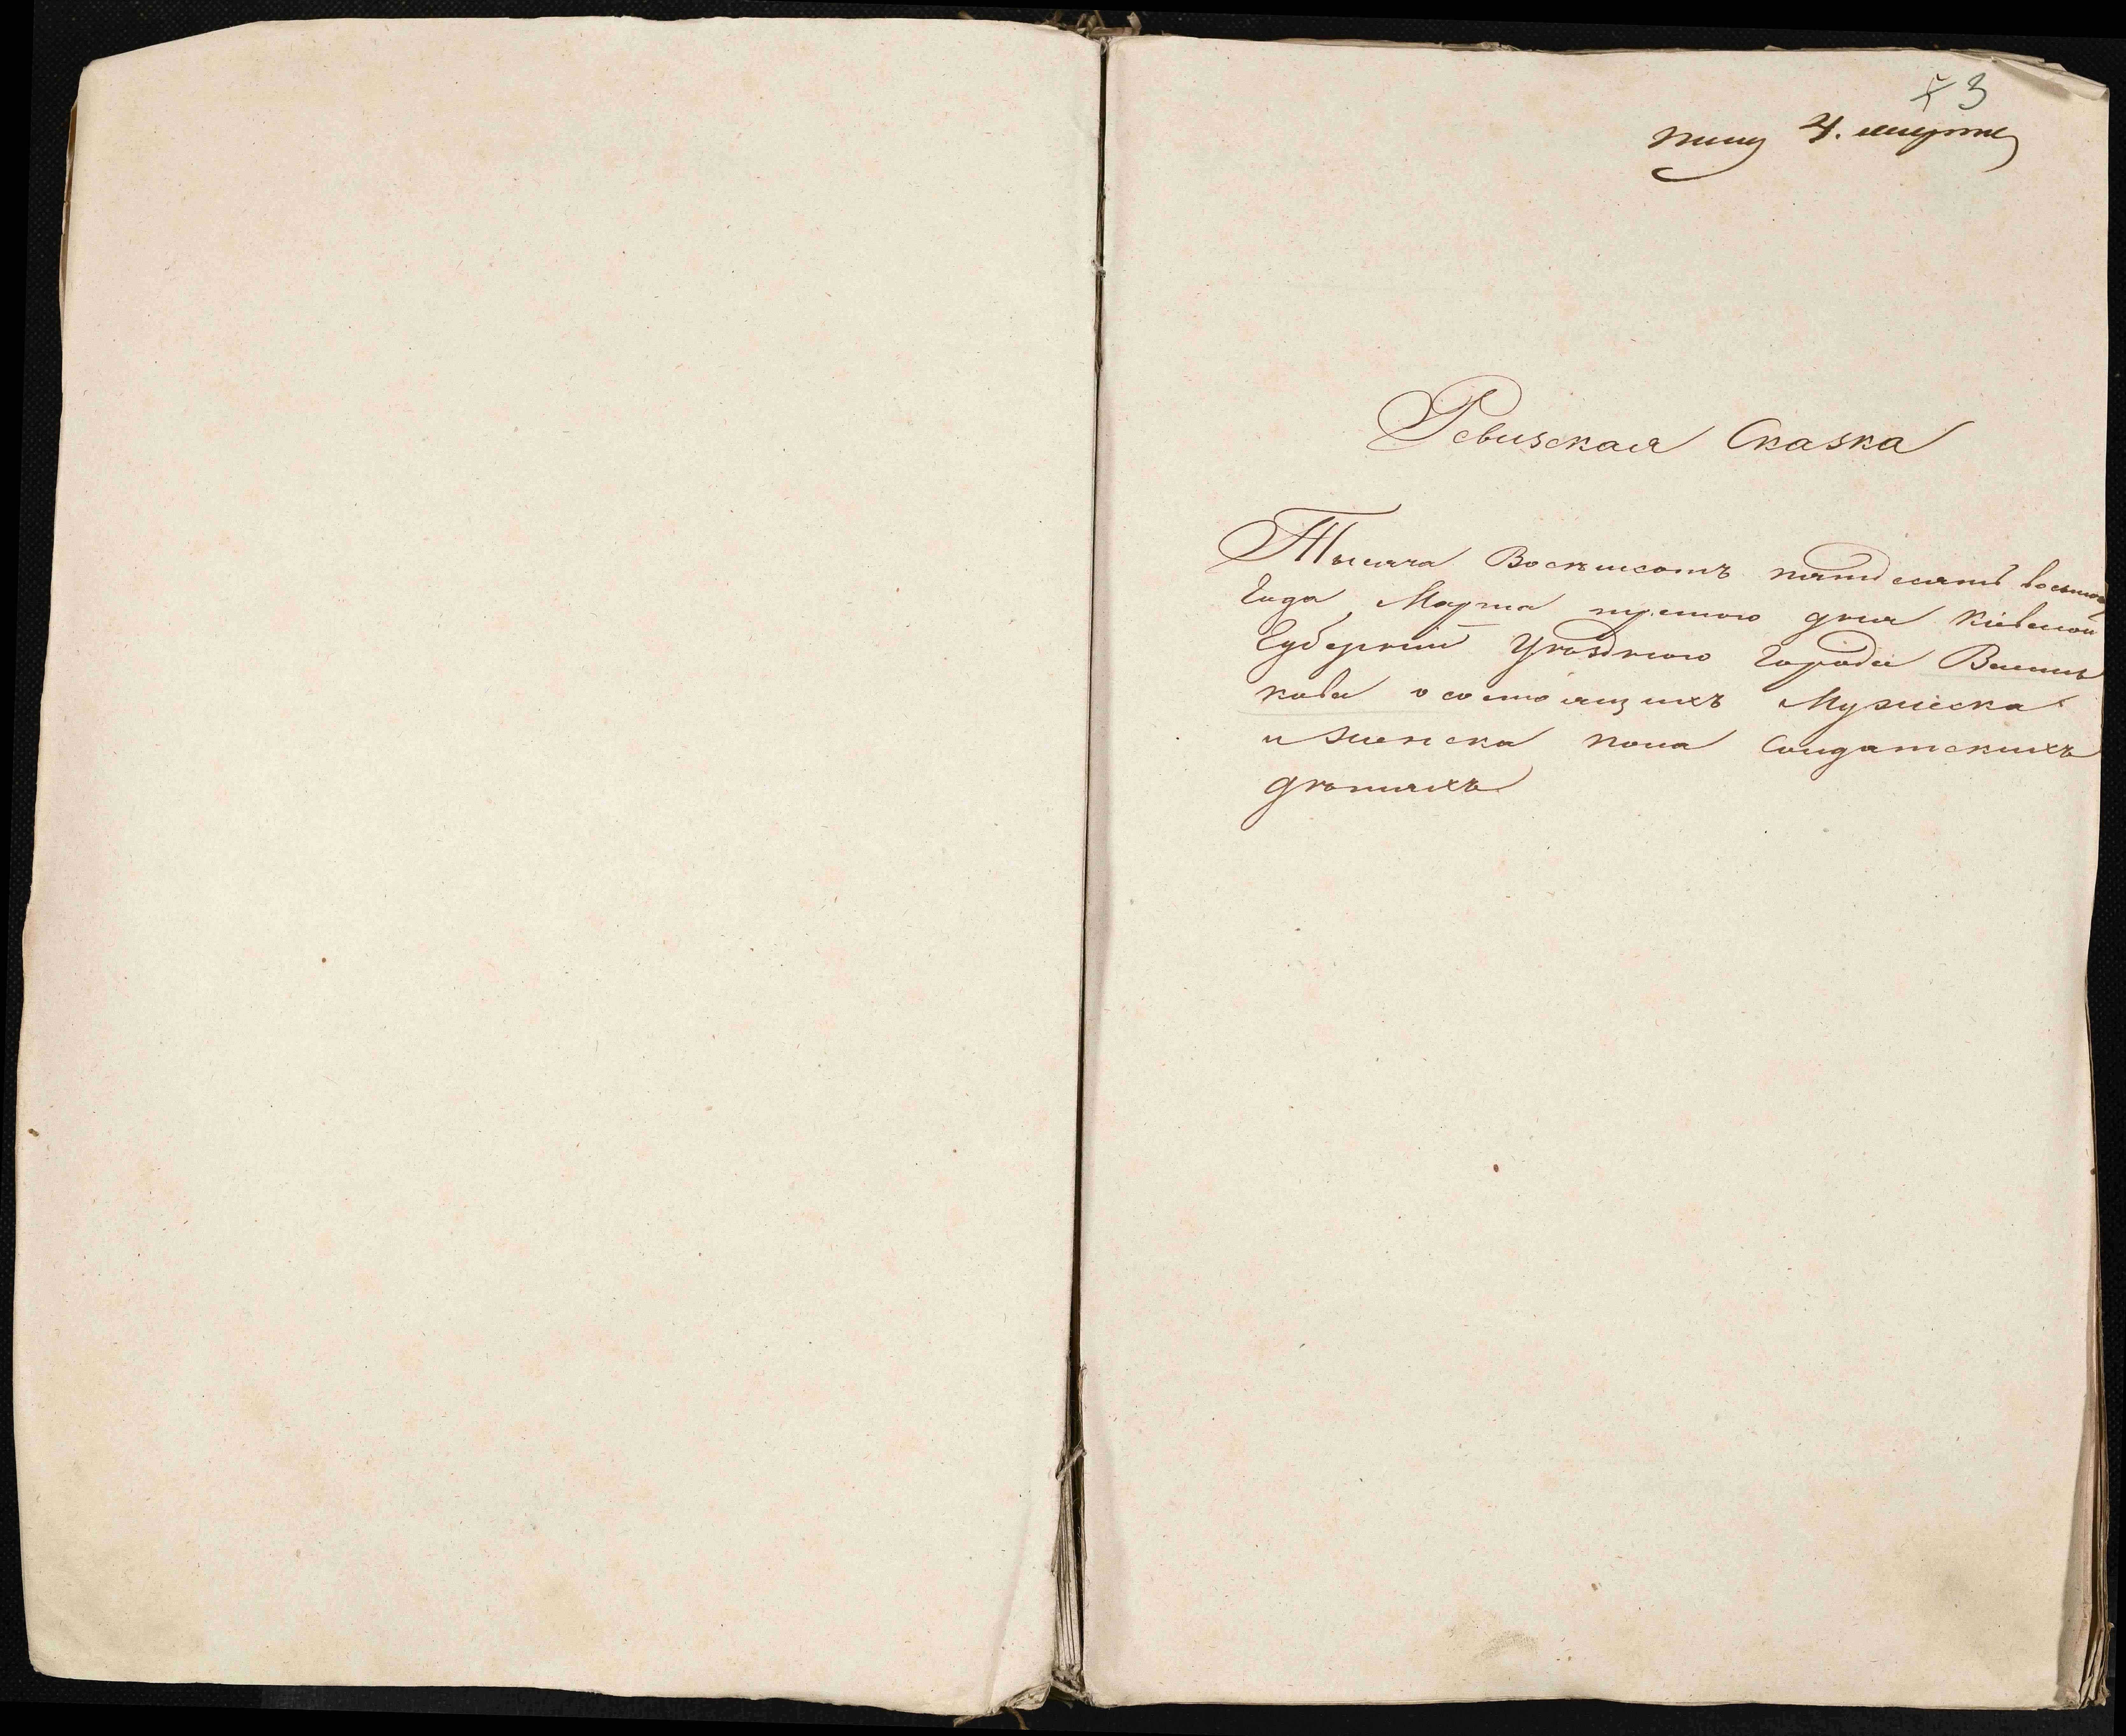 3
4. марта
Ревизская Сказка
Тысяча Восемсотъ пятдесятъ восьмого
Года, Марта третого дня Кіевской
Губерніи Уѣзднаго Города Василь
кова о состоящихъ Мужеска
и женска пола Солдатскихъ
дѣтяхъ